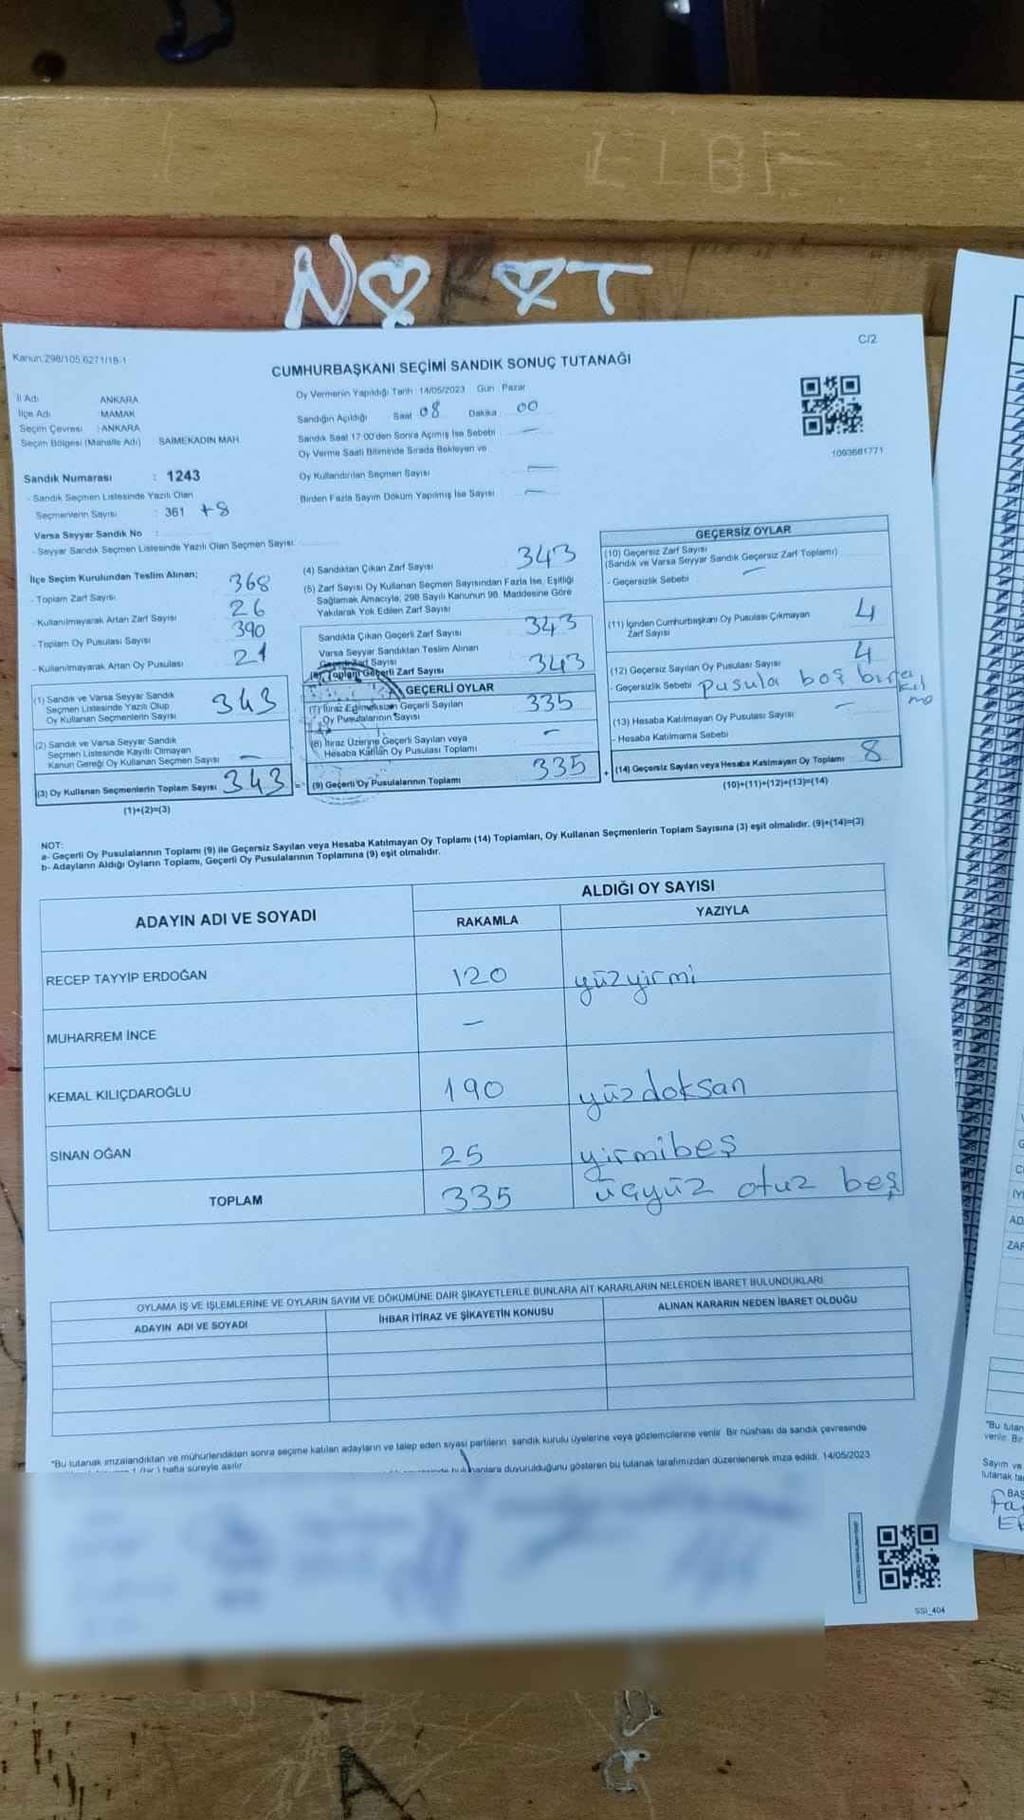 ELBF
NO ŞT
C/2
Kanun:298/105,6271/18-1
CUMHURBAŞKANI SEÇİMİ SANDIK SONUÇ TUTANAĞI
İl Adı : ANKARA
İlçe Adı : MAMAK
Seçim Çevresi : ANKARA
Seçim Bölgesi (Mahalle Adı) SAİMEKADIN MAH.
Oy Vermenin Yapıldığı Tarih : 14/05/2023 Gün : Pazar
Sandığın Açıldığı Saat 08 Dakika 00
Sandık Saat 17:00'den Sonra Açılmış İse Sebebi —
Oy Verme Saati Bitiminde Sırada Bekleyen ve
Oy Kullandırılan Seçmen Sayısı —
Birden Fazla Sayım Döküm Yapılmış İse Sayısı —
1093681771
Sandık Numarası : 1243
- Sandık Seçmen Listesinde Yazılı Olan
Seçmenlerin Sayısı : 361 +8
Varsa Seyyar Sandık No :
- Seyyar Sandık Seçmen Listesinde Yazılı Olan Seçmen Sayısı:
İlçe Seçim Kurulundan Teslim Alınan;
- Toplam Zarf Sayısı 368
- Kullanılmayarak Artan Zarf Sayısı 26
- Toplam Oy Pusulası Sayısı 390
- Kullanılmayarak Artan Oy Pusulası 21
(1) Sandık ve Varsa Seyyar Sandık
Seçmen Listesinde Yazılı Olup
Oy Kullanan Seçmenlerin Sayısı 343
(2) Sandık ve Varsa Seyyar Sandık
Seçmen Listesinde Kayıtlı Olmayan
Kanun Gereği Oy Kullanan Seçmen Sayısı —
(3) Oy Kullanan Seçmenlerin Toplam Sayısı 343
(1)+(2)=(3)
(4) Sandıktan Çıkan Zarf Sayısı 343
(5) Zarf Sayısı Oy Kullanan Seçmen Sayısından Fazla İse, Eşitliği
Sağlamak Amacıyla; 298 Sayılı Kanunun 98. Maddesine Göre
Yakılarak Yok Edilen Zarf Sayısı
Sandıkta Çıkan Geçerli Zarf Sayısı 343
Varsa Seyyar Sandıktan Teslim Alınan
Geçerli Zarf Sayısı
(6) Toplam Geçerli Zarf Sayısı 343
GEÇERLİ OYLAR
(7) İtiraz Edilmeksizin Geçerli Sayılan
Oy Pusulalarının Sayısı 335
(8) İtiraz Üzerine Geçerli Sayılan veya
Hesaba Katılan Oy Pusulası Toplamı —
(9) Geçerli Oy Pusulalarının Toplamı 335
GEÇERSİZ OYLAR
(10) Geçersiz Zarf Sayısı
(Sandık ve Varsa Seyyar Sandık Geçersiz Zarf Toplamı)
- Geçersizlik Sebebi —
(11) İçinden Cumhurbaşkanı Oy Pusulası Çıkmayan
Zarf Sayısı 4
(12) Geçersiz Sayılan Oy Pusulası Sayısı 4
- Geçersizlik Sebebi pusula boş bıra
kıl
ma
(13) Hesaba Katılmayan Oy Pusulası Sayısı —
- Hesaba Katılmama Sebebi
(14) Geçersiz Sayılan veya Hesaba Katılmayan Oy Toplamı 8
(10)+(11)+(12)+(13)=(14)
NOT:
a- Geçerli Oy Pusulalarının Toplamı (9) ile Geçersiz Sayılan veya Hesaba Katılmayan Oy Toplamı (14) Toplamları, Oy Kullanan Seçmenlerin Toplam Sayısına (3) eşit olmalıdır. (9)+(14)=(3)
b- Adayların Aldığı Oyların Toplamı, Geçerli Oy Pusulalarının Toplamına (9) eşit olmalıdır.
ADAYIN ADI VE SOYADI
ALDIĞI OY SAYISI
RAKAMLA
YAZIYLA
RECEP TAYYİP ERDOĞAN 120 yüzyirmi
MUHARREM İNCE —
KEMAL KILIÇDAROĞLU 190 yüzdoksan
SİNAN OĞAN 25 yirmibeş
TOPLAM 335 üçyüz otuz beş
OYLAMA İŞ VE İŞLEMLERİNE VE OYLARIN SAYIM VE DÖKÜMÜNE DAİR ŞİKAYETLERLE BUNLARA AİT KARARLARIN NELERDEN İBARET BULUNDUKLARI
ADAYIN ADI VE SOYADI
İHBAR İTİRAZ VE ŞİKAYETİN KONUSU
ALINAN KARARIN NEDEN İBARET OLDUĞU
*Bu tutanak imzalandıktan ve mühürlendikten sonra seçime katılan adayların ve talep eden siyasi partilerin sandık kurulu üyelerine veya gözlemcilerine verilir. Bir nüshası da sandık çevresinde
hafta süreyle asılır.
duyurulduğunu gösteren bu tutanak tarafımızdan düzenlenerek imza edildi. 14/05/2023
SSI_404
*Bu tutan
verilir. Bir
Sayım ve
tutanak ta
BAŞ